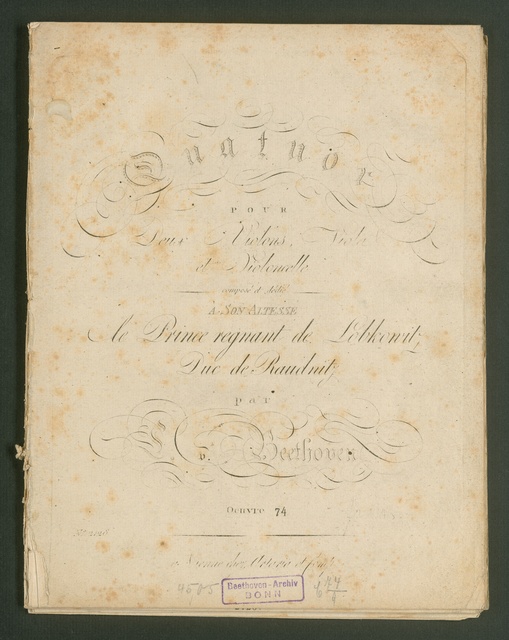 Quatuor
POUR
Deux Violons, Viola
et Violoncelle
composé et dedié
A SON ALTESSE
le Prince regnant de Lobkowitz
Duc de Raudnitz
par
L. v. Beethoven
Oeuvre 74
à Vienne chez Artaria et
4585
Beethoven-Archiv
BONN